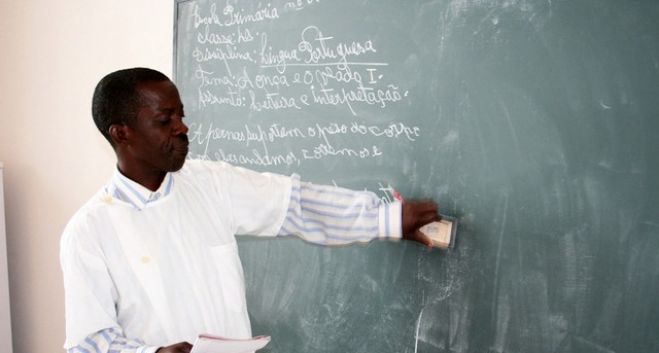 Escola Primária nº
classe: 4ª.
Disciplina: Língua Portuguesa
Tema: A onça e o veado I.
Assunto: Leitura e interpretação.
As pernas suportam o peso do corpo
andamos, corremos e